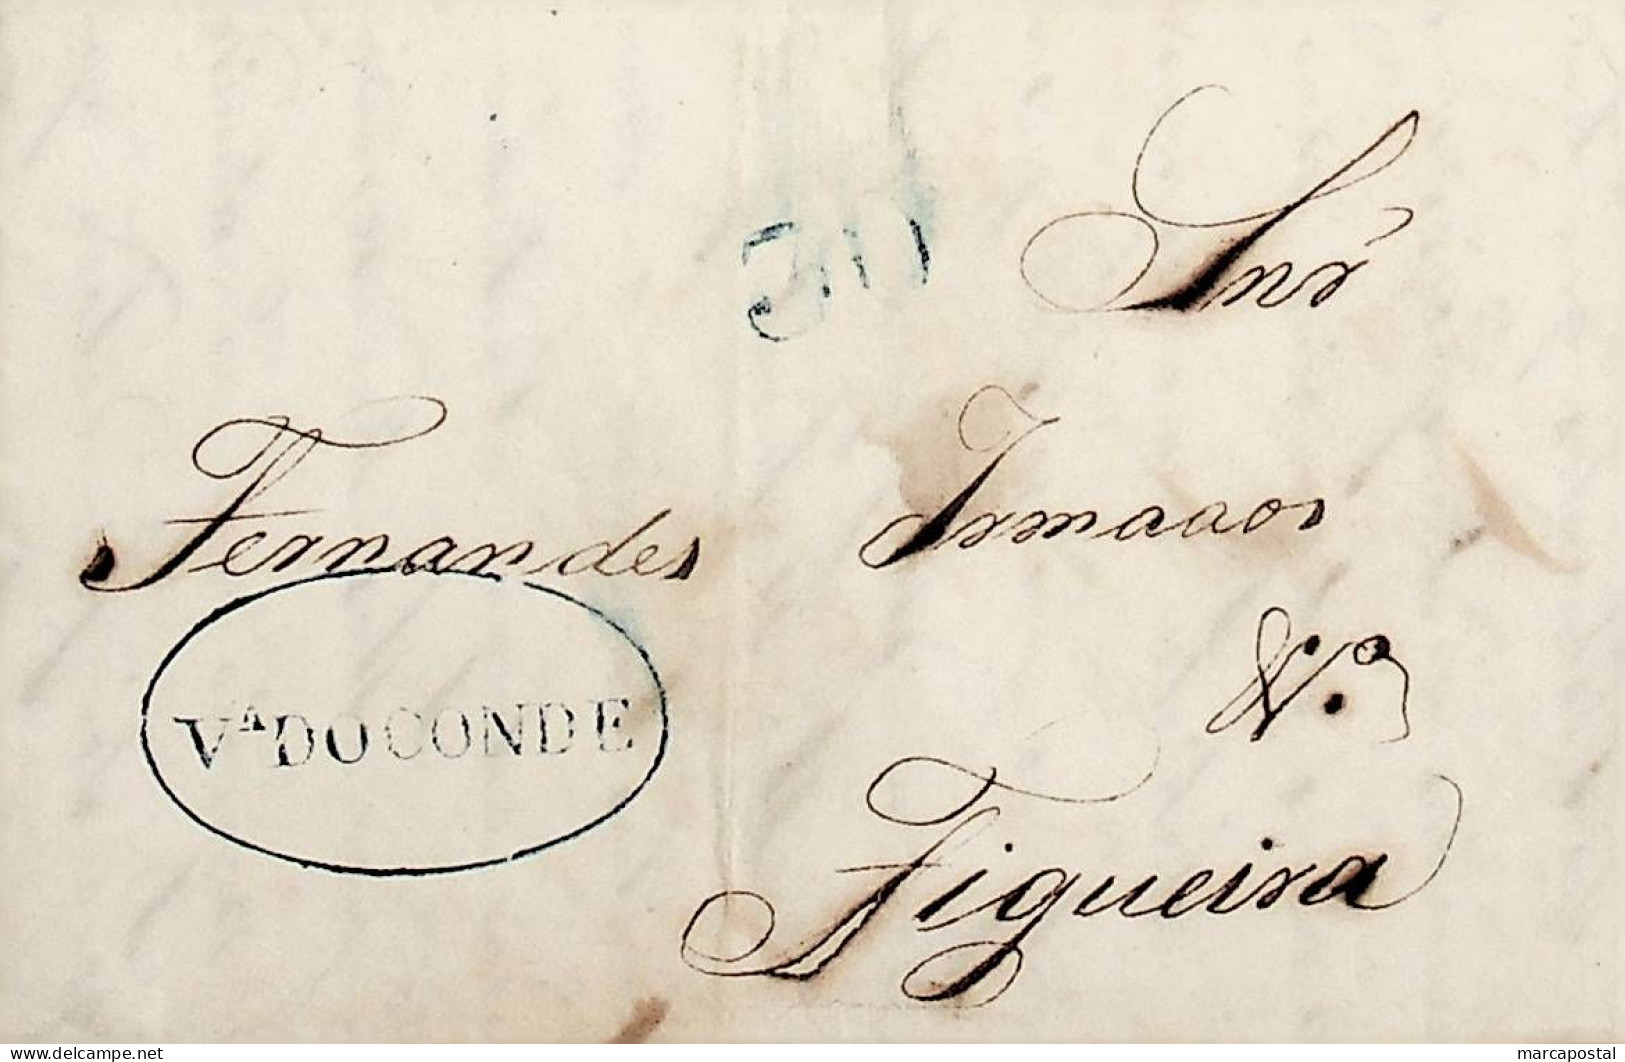 30
Snr
Fernandes Irmaaos
Vª DO CONDE
Figueira
www.delcampe.net
marcapostal